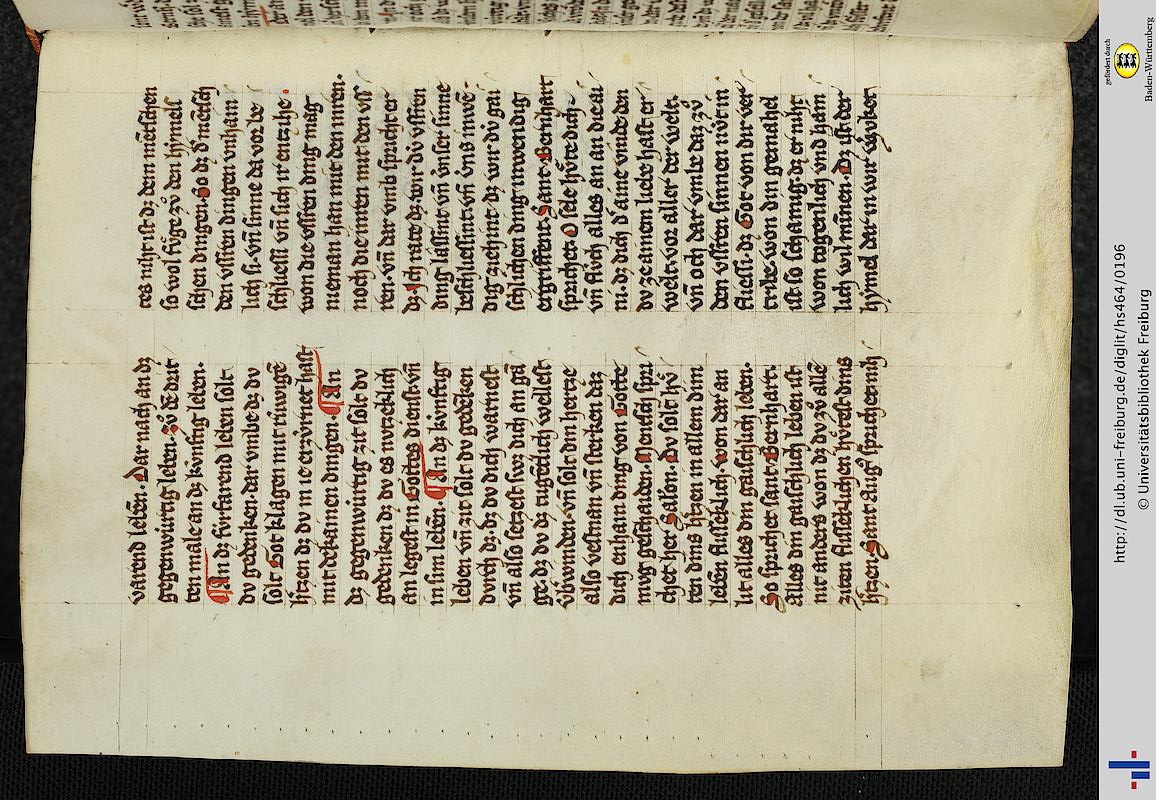 varend lebē. Dar nach an dz
gegenwúrtig leben. Zů dē drit
ten male an dz kvnftig leben.
An dz fúrfarend leben solt
dv gedenken. dar vmbe dz dv
solt Got klagen mit rúwigē
hˢtzen dz dv in ie erzúrnet hast
mit dekainen dingen. An
dz gegenwirtig zit solt dv
gedenken dz dv es nvtzeklich
an legest in Gottes dienst vn̄
in sim lebēn. An dz kvnftig
leben vn̄ zit solt dv gedēken
durch dz. dz dv dich warnest
vn̄ also setzest swē dich an gā
ge. dz dv dz tugētlich wellest
v́bˢwinden. vn̄ solt din hertze
also vestnan vn̄ sterken daz
dich enhain ding von Gotte
mvg geschaiden. Mensch spri
chet her Salon. Dv solt hv̊
ten dins hˢtzen in allem dim
lebēn flisseklich won dar an
lit alles din gaischlich leben.
So sprichet sant Bernhart.
Alles din gaischlich leben ist
nit anders won dz dv zů allē
ziten flisseklichen hv̊test dins
hˢtzen. Sant Augˢ sprichet nih
tes niht ist dz dem mētschen
so wol fůge zů den hymels
schen dingen. So dz dˢ mētsch
den vssren dingen vnhain
lich si. vn̄ sinne da vor be
schliessi vn̄ sich ir entzihe.
won die vssren ding mag
nieman han mit den inren.
noch die inren mit den vss
ren. vn̄ dar vmb sprichet er
dz. Ich rate dz. wir dv vssren
ding lassint vn̄ vnser sinne
beschliessint. vn̄ vns inwē-
dig ziehint. dz wir dv gai
schlichen ding inwendig
ergriffent. Sant Bernhart
sprichet. O sele hv̊te dich.
vn̄ flúch alles an an die ai
ni. dz dich dˢ aine vinde den
dv ze ainem liebe hast er
welt. vor aller der welt.
vn̄ och dar vmbe daz zů
den vssren sinnen nút in
fliessi. dz Got von dir ver
tribe. won din gemahel
ist so schamig. dz er niht
won togenlich vnd haim
lich wil minnen. Dz ist der
hymel dar in wir v́ˢzvket
http://dl.ub.uni-freiburg.de/diglit/hs464/0196
© Universitätsbibliothek Freiburg
gefördert durch
Baden-Württemberg